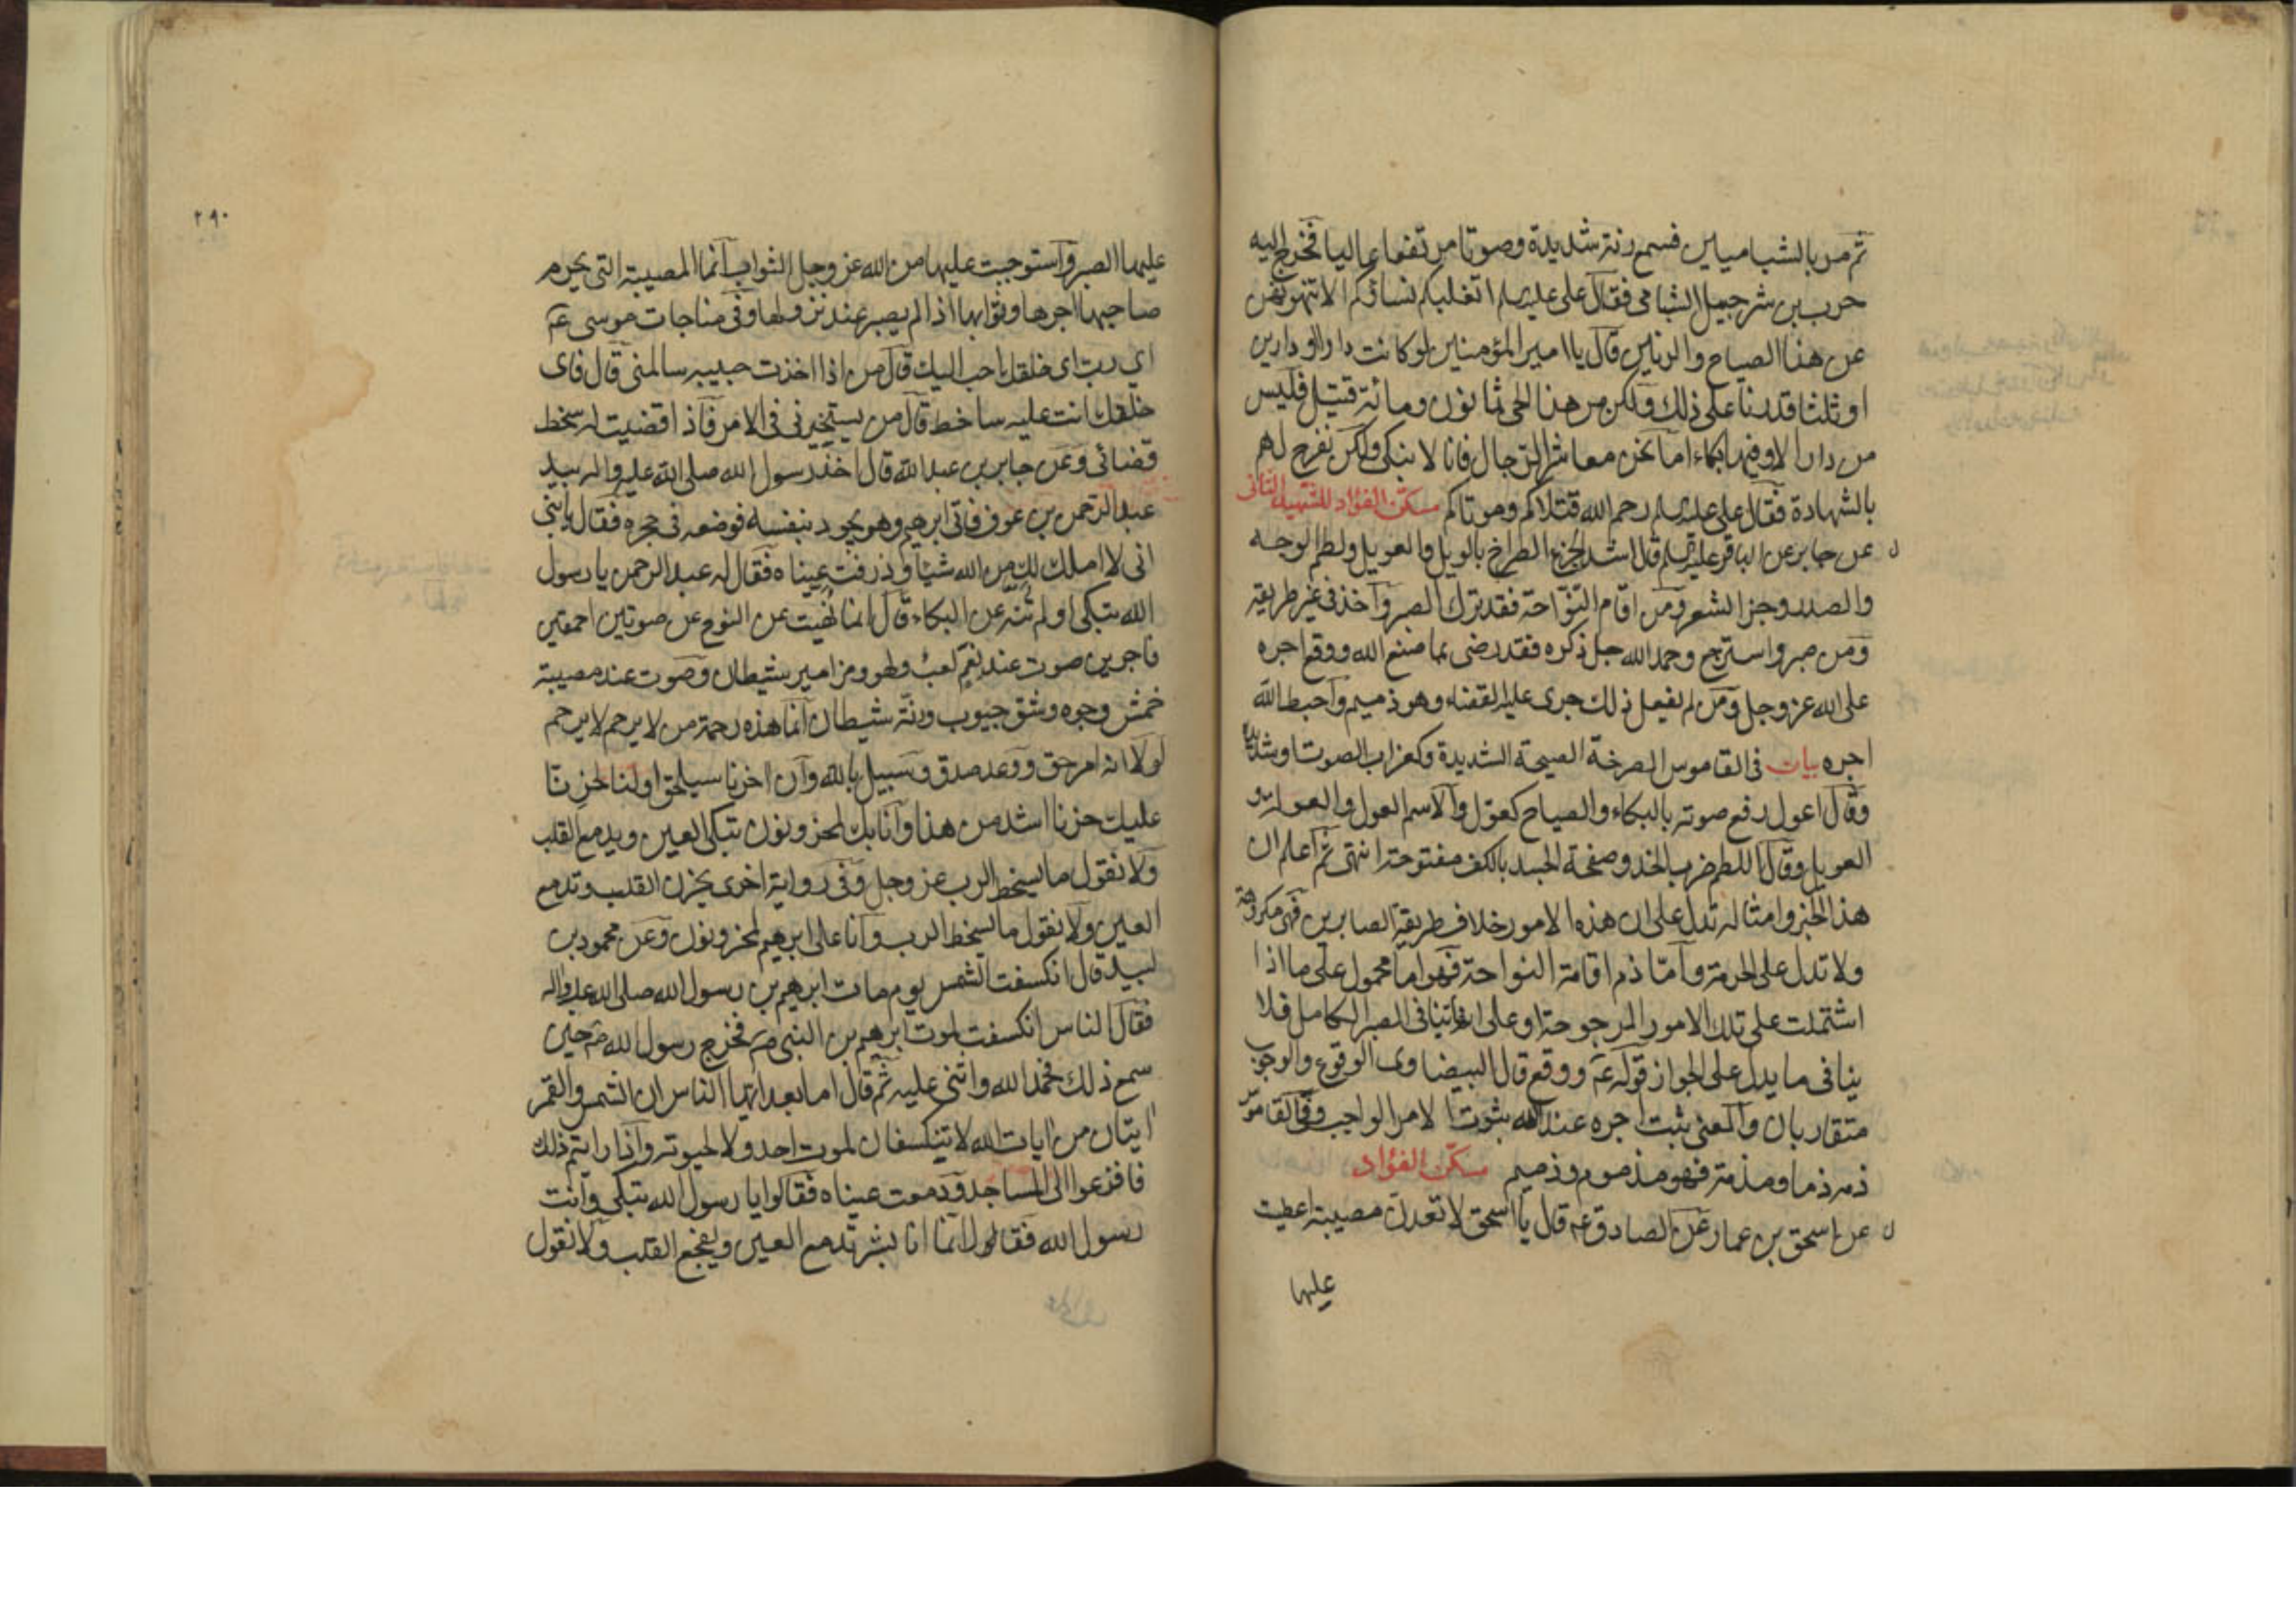 ثم مر بالشباميين فسمع رنة شديدة وصوتا مرتفعا عاليا فخرج اليه
حرب بن شرجيل الشبامى فقال على عليه السلم اتغلبكم نساؤكم الا تنهونهن
عن هذا الصياح والرنين قال يا امير المؤمنين لو كانت دارا او دارين
او ثلثا قدرنا على ذلك ولكن من هذا الحى ثمانون ومائة قتيل فليس
من دار الا وفيها بكاء اما نحن معاشر الرجال فانا لا نبكى ولكن نفرح لهم
بالشهادة فقال على عليه السلم رحم الله قتلاكم وموتاكم مسكن الفؤاد للشهيد الثانى
عن جابر عن الباقر عليه السلم قال اشد الجزع الصراخ بالويل والعويل ولطم الوجه
والصدر وجز الشعر ومن اقام النواحة فقد ترك الصبر واخذ فى غير طريقه
ومن صبر واسترجع وحمد الله جل ذكره فقد رضى بما صنع الله ووقع اجره
على الله عز وجل ومن لم يفعل ذلك جرى عليه القضاء وهو ذميم واحبط الله
اجره بيان فى القاموس الصرخة الصيحة الشديدة وكغراب الصوت او شديده
وقال اعول رفع صوته بالبكاء والصياح كعول والاسم العول والعولة و
العويل وقال اللطم ضرب الخد وصفحة الجسد بالكف مفتوحة انتهى ثم اعلم ان
هذا الخبر وامثاله تدل على ان هذه الامور خلاف طريقة الصابرين فهى مكروهة
ولا تدل على الحرمة واما ذم اقامة النواحة فهو اما محمول على ما اذا
اشتملت على تلك الامور المرجوحة او على انها تنافى الصبر الكامل فلا
ينافى ما يدل على الجواز قوله ع ووقع قال البيضاوى الوقوع والوجوب
متقاربان والمعنى ثبت اجره عند الله ثبوت الامر الواجب وفى القاموس
ذمه ذما ومذمة فهو مذموم وذميم مسكن الفؤاد
عن اسحق بن عمار عن الصادق ع قال يا اسحق لا تعدن مصيبة اعطيت
عليها
٢٩٠
عليها الصبر واستوجبت عليها من الله عز وجل الثواب انما المصيبة التى يحرم
صاحبها اجرها وثوابها اذا لم يصبر عند نزولها وفى مناجات موسى ع
اي رب اى خلقك احب اليك قال من اذا اخذت حبيبه سالمنى قال فاى
خلقك انت عليه ساخط قال من يستخيرنى فى الامر فاذا قضيت له سخط
قضائى وعن جابر بن عبد الله قال اخذ رسول الله صلى الله عليه واله بيد
عبد الرحمن بن عوف فاتى ابرهيم وهو يجود بنفسه فوضعه فى حجره فقال يا بنى
انى لا املك لك من الله شيئا وذرفت عيناه فقال له عبد الرحمن يا رسول
الله تبكى اولم تنه عن البكاء قال انما نهيت عن النوح عن صوتين احمقين
فاجرين صوت عند نغم لعب ولهو ومزامير شيطان وصوت عند مصيبة
خمش وجوه وشق جيوب ورنة شيطان انما هذه رحمة من لا يرحم لا يرحم
لولا انه امر حق ووعد صدق وسبيل بالله وان اخرنا سيلحق اولنا لحزنا
عليك حزنا اشد من هذا وانا بك لمحزونون تبكى العين ويدمع القلب
ولا نقول ما يسخط الرب عز وجل وفى رواية اخرى يحزن القلب وتدمع
العين ولا نقول ما يسخط الرب وانا على ابرهيم لمحزونون وعن محمود بن
لبيد قال انكسفت الشمس يوم مات ابرهيم بن رسول الله صلى الله عليه واله
فقال الناس انكسفت لموت ابرهيم بن النبى ص فخرج رسول الله ص حين
سمع ذلك فحمد الله واثنى عليه ثم قال اما بعد ايها الناس ان الشمس والقمر
ايتان من ايات الله لا تنكسفان لموت احد ولا لحيوته واذا رايتم ذلك
فافزعوا الى المساجد ودمعت عيناه فقالوا يا رسول الله تبكى وانت
رسول الله فقال انما انا بشر تدمع العين ويفجع القلب ولا نقول